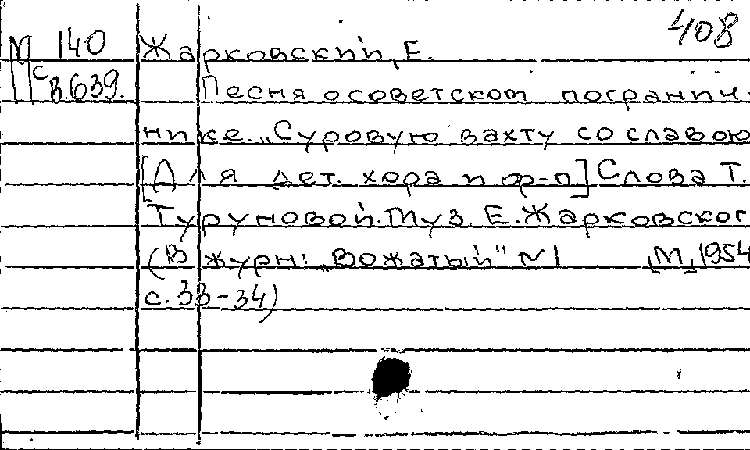 408
М 140 Жарковский, Е.
с3.639. Песня о советском погранич-
нике. „Суровую вахту со славою
[Для дет. хора и ф-п] Слова Т.
Туруновой. Муз. Е. Жарковског
(В журн: „Вожатый" №1 М, 1954
с. 33-34)